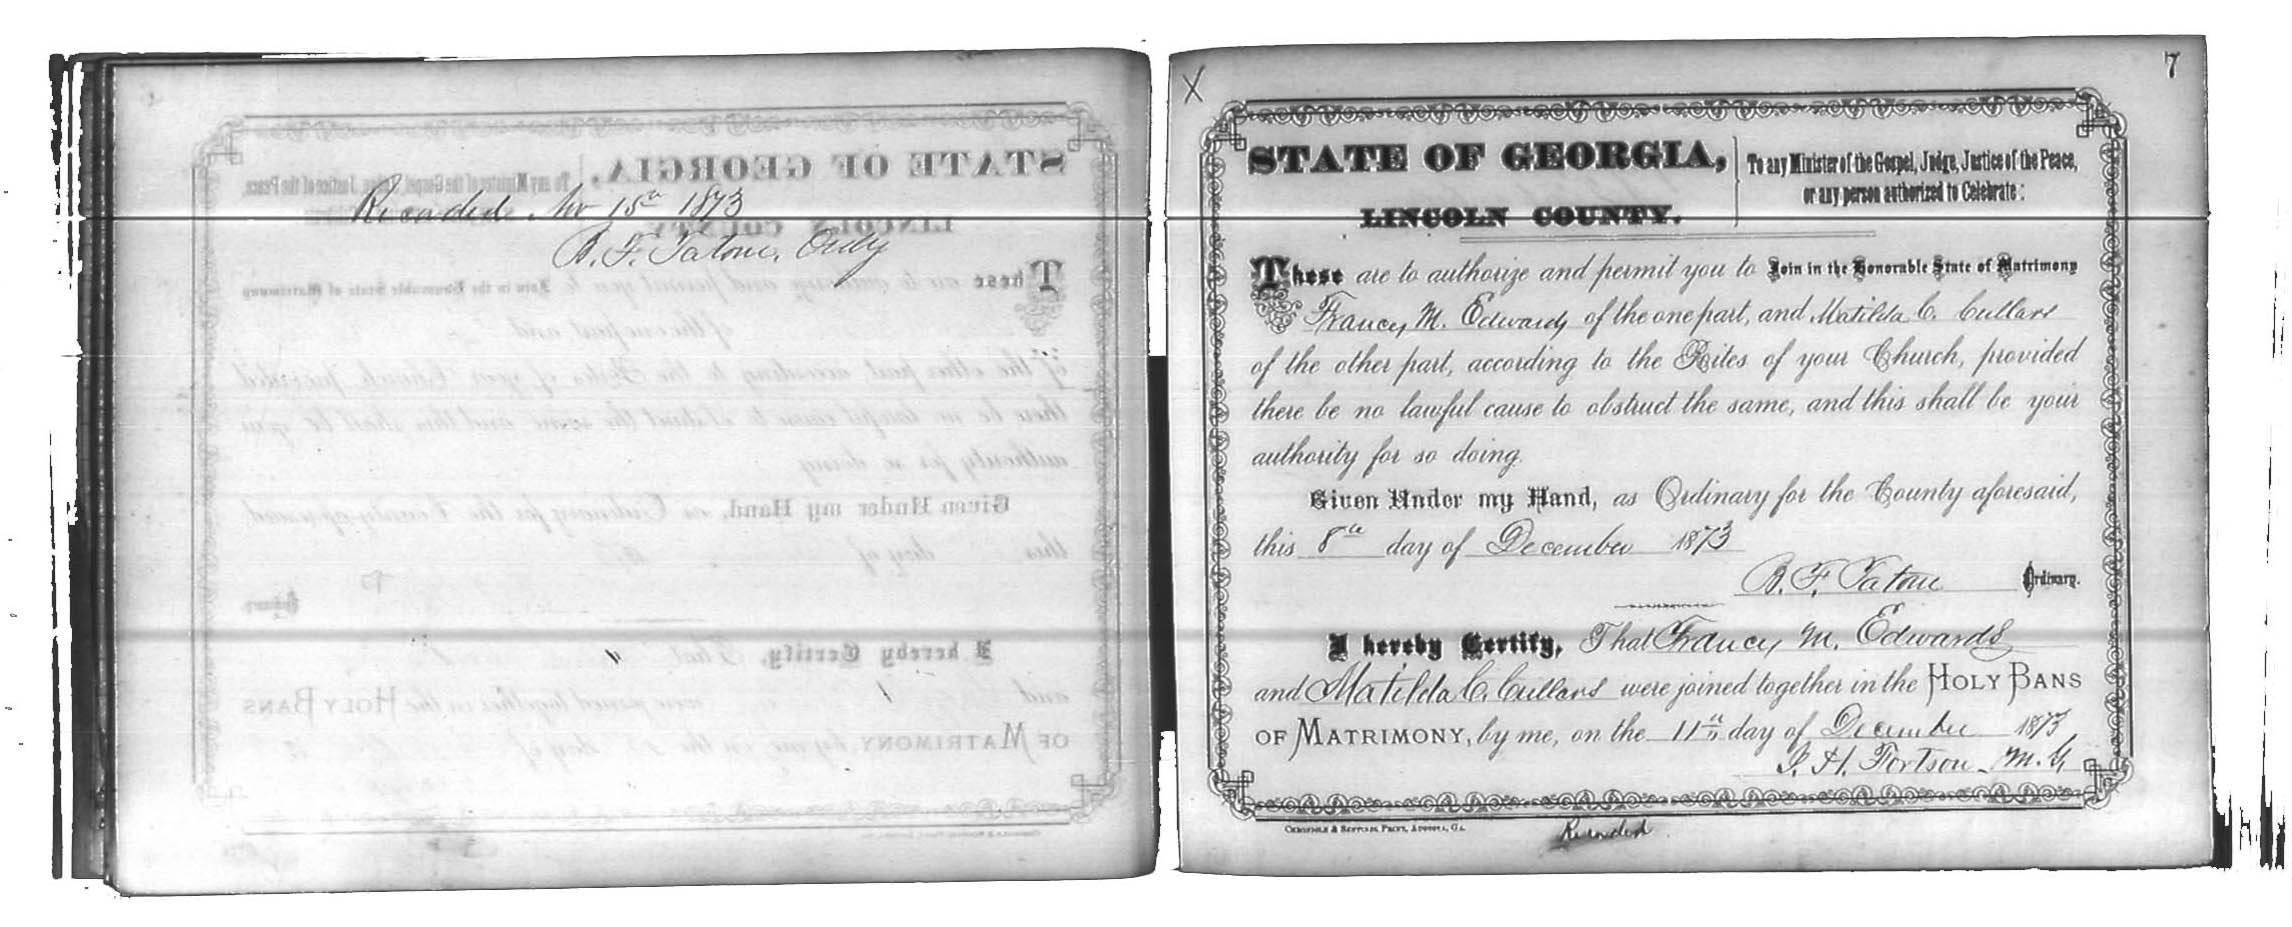 Recorded Nov 15th 1873
B. F. Tatom, Ordy
X
7
STATE OF GEORGIA,
LINCOLN COUNTY.
To any Minister of the Gospel, Judge, Justice of the Peace,
or any person authorized to Celebrate:
These are to authorize and permit you to Join in the Honorable State of Matrimony
Francy M. Edwards of the one part, and Matilda C. Cullars
of the other part, according to the Rites of your Church, provided
there be no lawful cause to obstruct the same, and this shall be your
authority for so doing.
Given Under my Hand, as Ordinary for the County aforesaid,
this 8th day of December 1873
B. F. Tatom Ordinary.
I hereby Certify, That Francy M. Edwards
and Matilda C. Cullars were joined together in the HOLY BANS
OF MATRIMONY, by me, on the 11th day of December 1873
J. H. Fortson M.G.
CHRONICLE & SENTINEL PRINT, AUGUSTA, GA.
Recorded